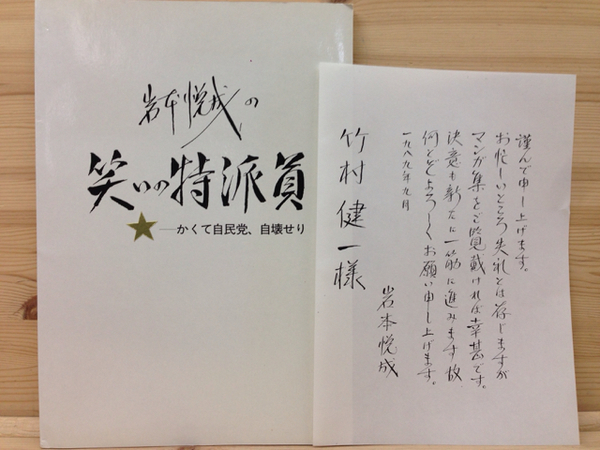 岩本悦成の
笑いの特派員
―かくて自民党、自壊せり
謹んで申し上げます。
お忙しいところ失礼とは存じますが
マンガ集をご覧戴ければ幸甚です。
決意も新たに一筋に進みます故
何とぞよろしくお願い申し上げます。
一九八九年九月
岩本悦成
竹村健一様